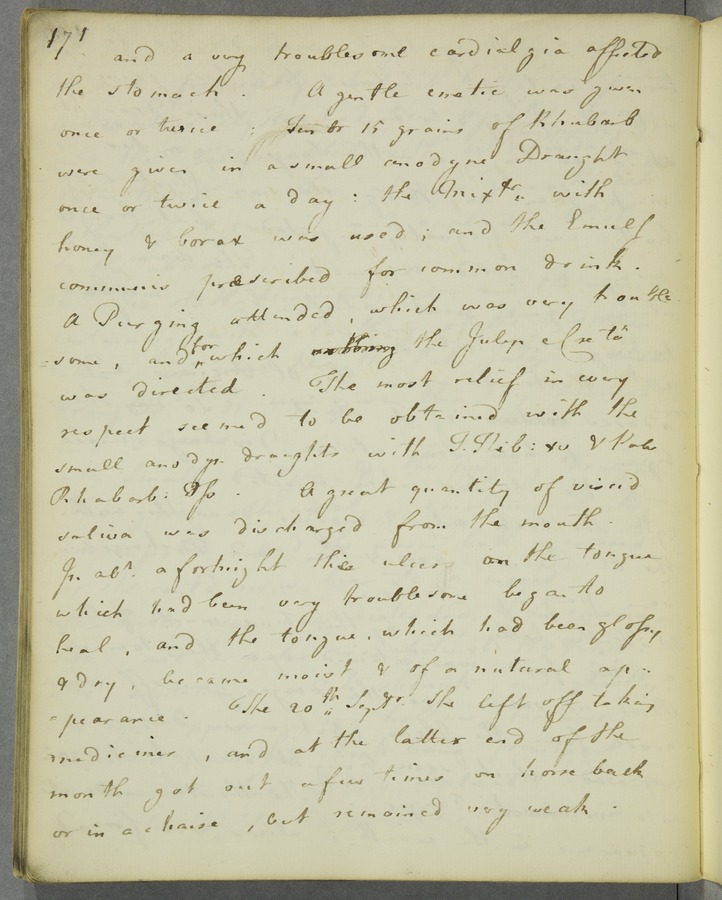 171
and a very troublesome cardialgia affected
the stomach . A gentle emetic was given
once or twice ; Ten or 15 grains of Rhubarb
were given in a small anodyne Draught
once or twice a day : the Mixtr. with
honey & borax was used ; and the Emuls
communis præscribed for common drink .
A Purging attended , which was very trouble
=some , and for which the Julep
was directed . The most relief in every
respect seemed to be obtained with the
small anodyn draughts with T. Theb: xv & Pulv
Rhabarb: . A great quantity of viscid
saliva was discharged from the mouth .
In abt. a fortnight the ulcers on the tongue
which had been very troublesome began to
heal , and the tongue , which had been glossy
& dry , became moist & of a natural ap=
=pearance . The 20th Septr. she left off taking
medicines , and at the latter end of the
month got out a few times on horse back
or in a chaise , but remained very weak .